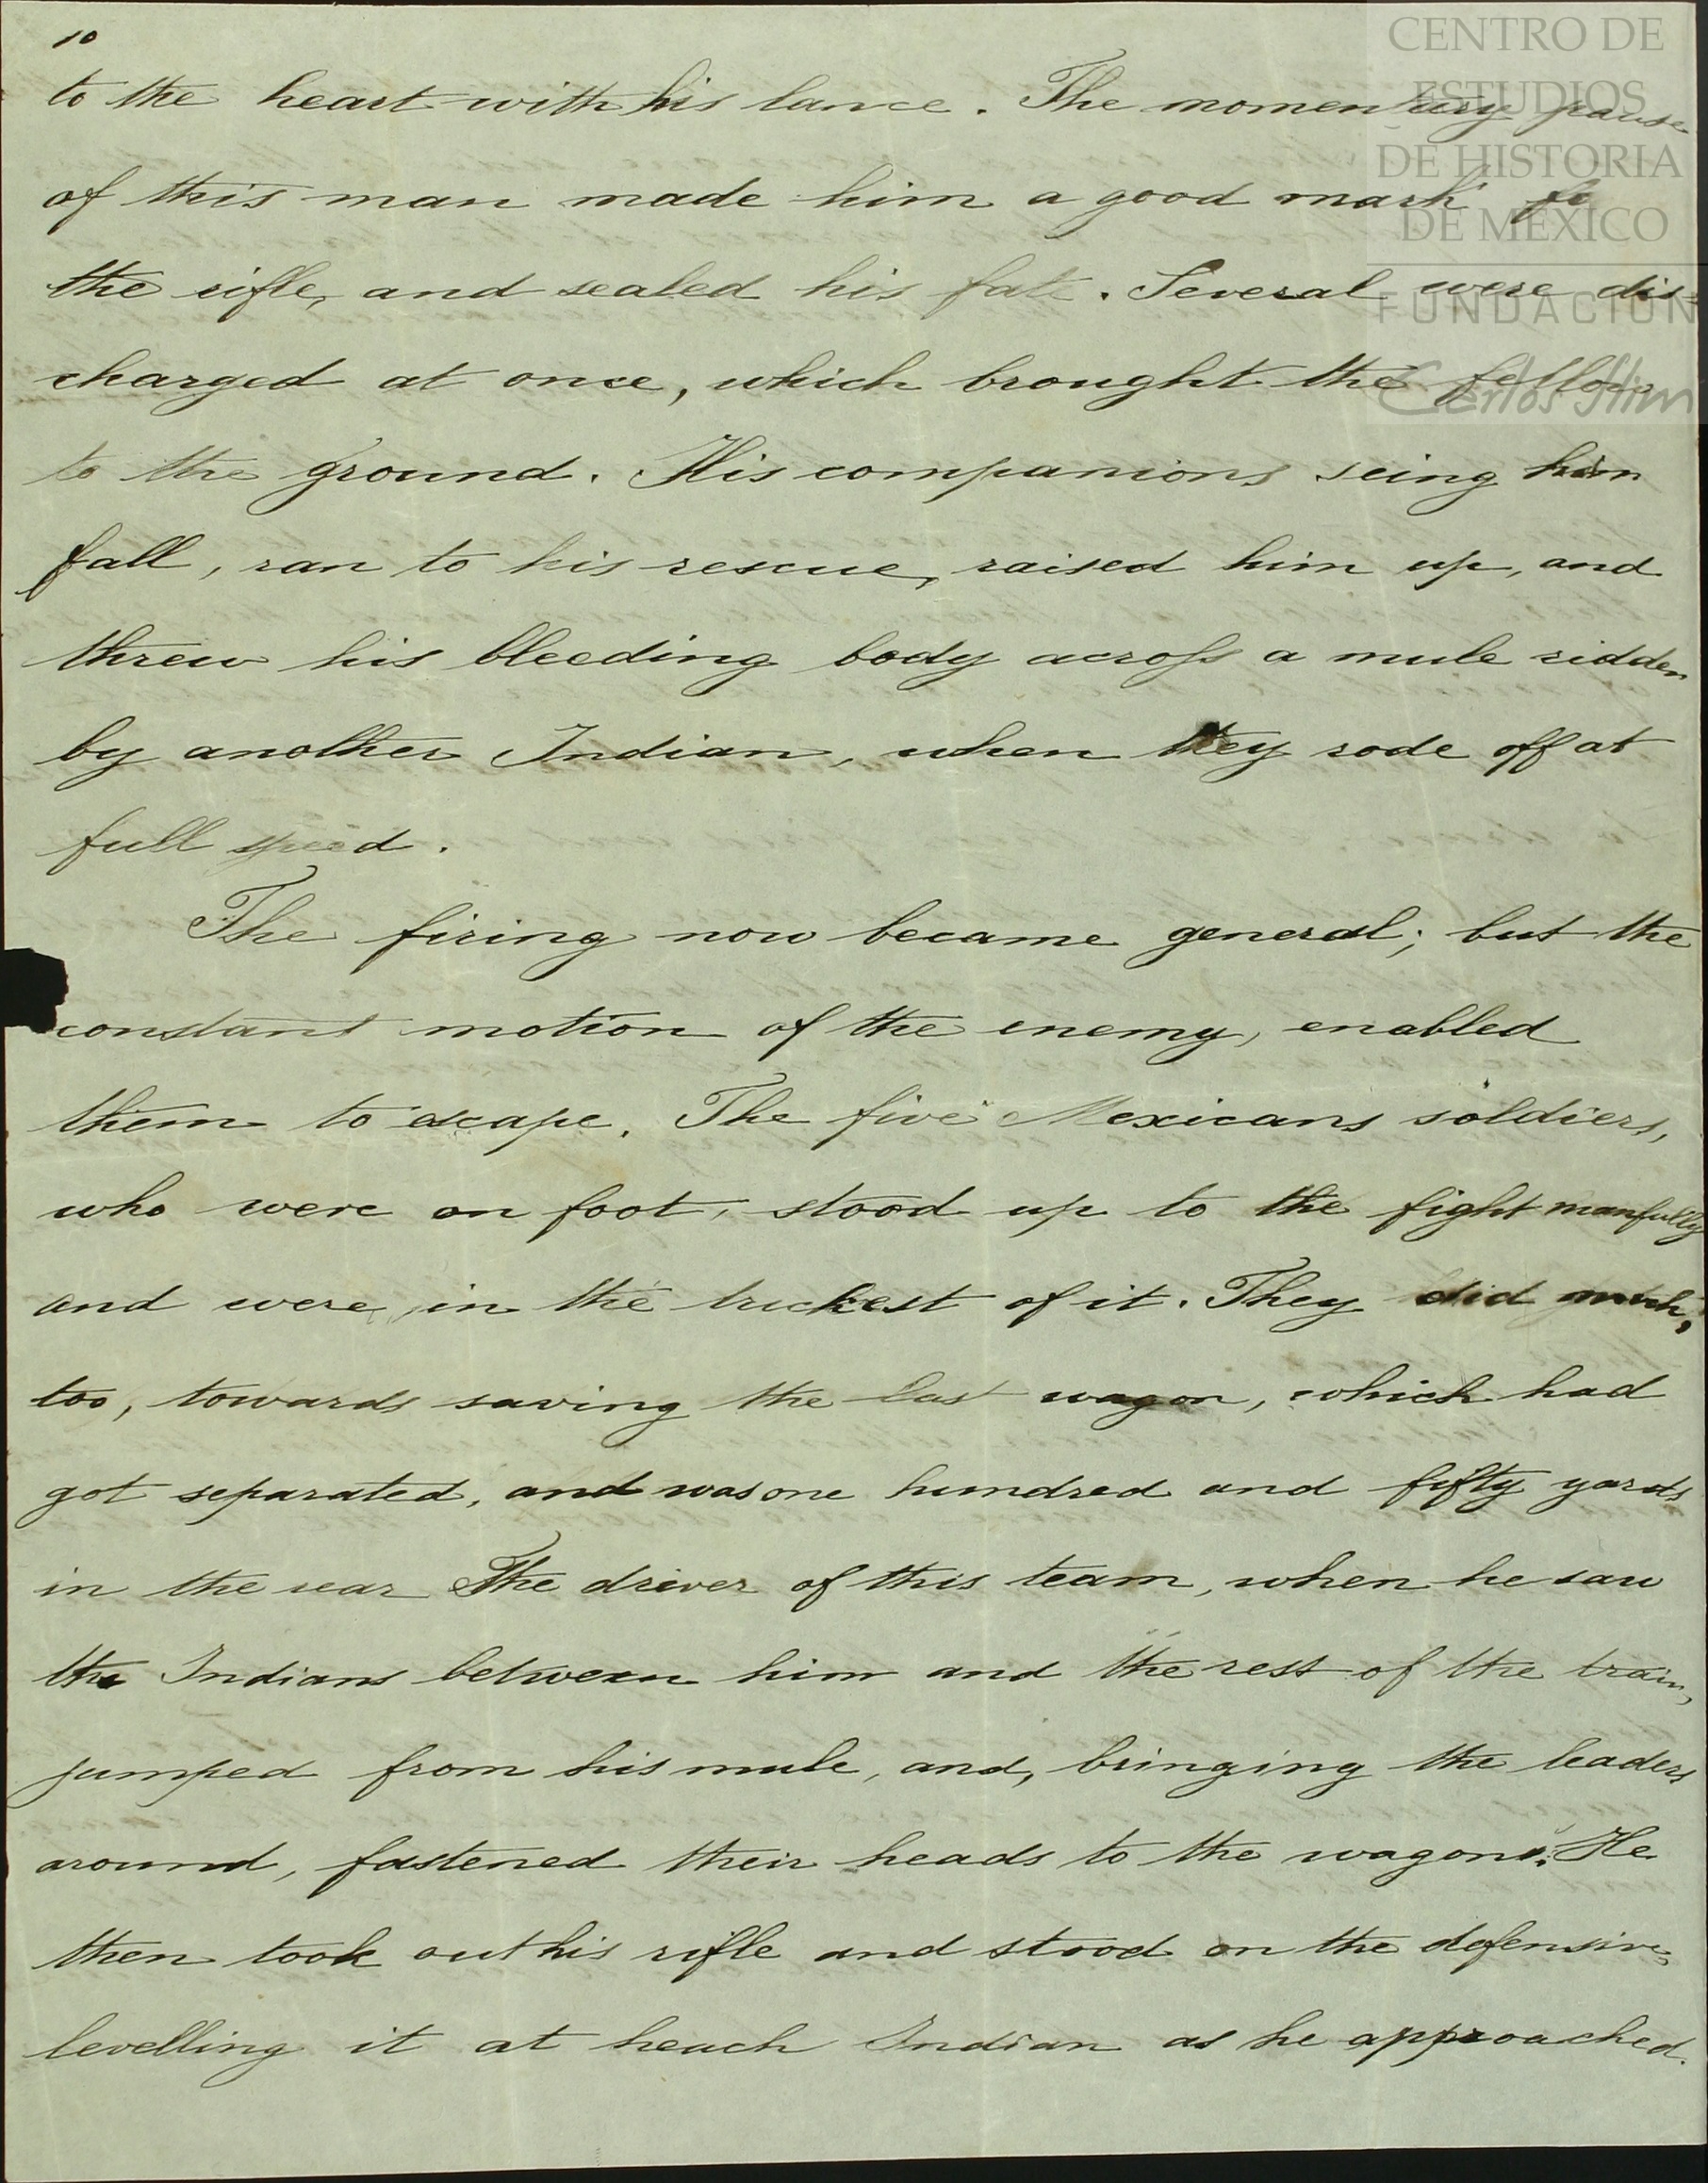 10
to the heart with his lance. The momentary pause
of this man made him a good mark fo
the rifle, and sealed his fate. Several were dis=
charged at once, which brought the fellow
to the ground. His companions seing him
fall, ran to his rescue, raised him up, and
threw his bleeding body across a mule ridden
by another Indian, when they rode off at
full speed.
The firing now became general; but the
constant motion of the enemy, enabled
them to escape. The five Mexicans soldiers,
who were on foot, stood up to the fight manfully
and were, in the trickest of it. They did much,
too, towards saving the last wagon, which had
got separated, and was one hundred and fifty yards
in the rear The driver of this team, when he saw
the Indians between him and the rest of the train,
jumped from his mule, and, bringing the leaders
around, fastened their heads to the wagons. He
then took out his rifle and stood on the defensive,
levelling it at heach Indian as he approached.
CENTRO DE
ESTUDIOS
DE HISTORIA
DE MÉXICO
FUNDACIÓN
Carlos Slim